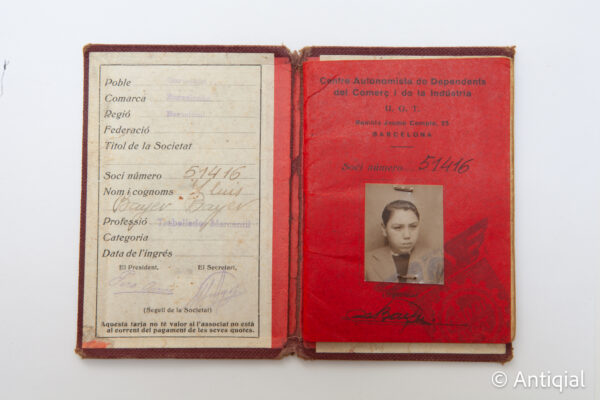 Poble Barcelona
Comarca Barcelonès
Regió Barcelona
Federació
Titol de la Societat
Soci número 51416
Nom i cognoms Lluis
Bayer Bayer
Professió Treballador Mercantil
Categoria
Data de l'ingrés
El President, El Secretari,
(Segell de la Societat)
Aquesta tarja no té valor si l'associat no està
al corrent del pagament de les seves quotes.
Centre Autonomista de Dependents
del Comerç i de la Indústria
U. G. T.
Rambla Santa Mònica, 25
BARCELONA
Soci número 51416
© Antiqial